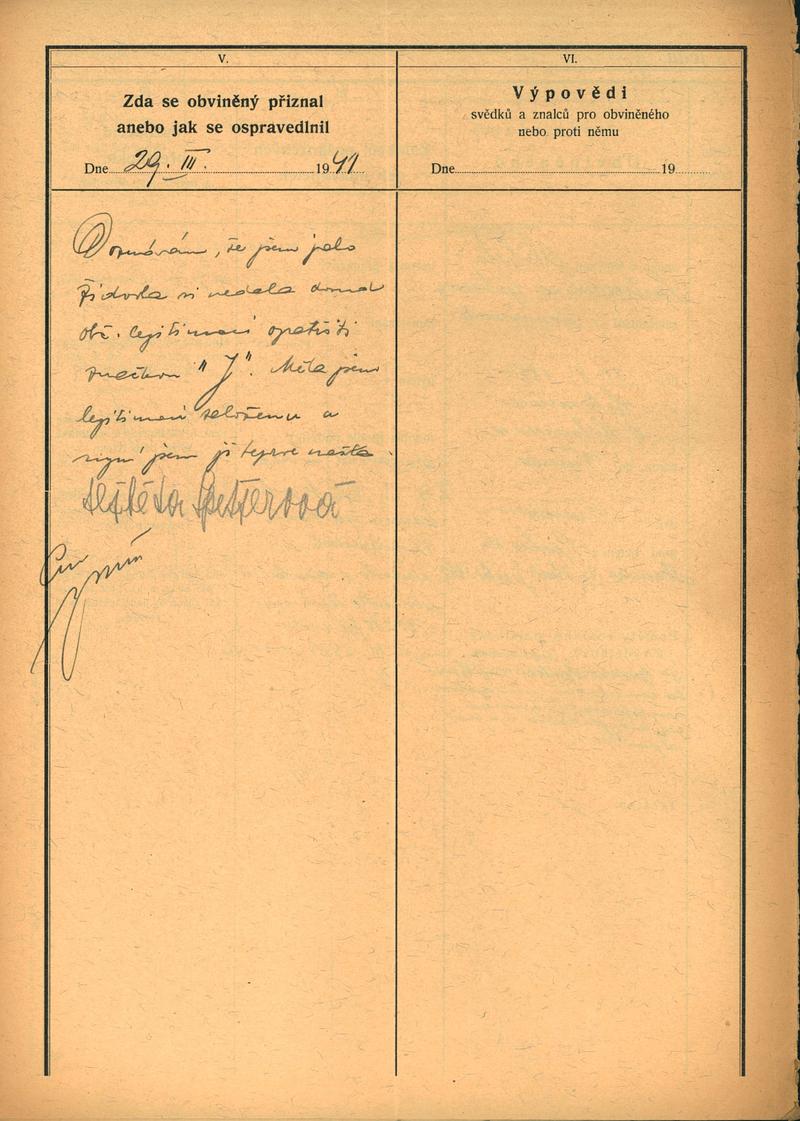 V.
Zda se obviněný přiznal
anebo jak se ospravedlnil
Dne 29. III. 1941
VI.
Výpovědi
svědků a znalců pro obviněného
nebo proti němu
Dne 19
Doznávám, že jsem jako
židovka si nedala
obč. legitimaci opatřiti
značkou "J". Měla jsem
legitimaci založenu a
nyní jsem ji teprve našla.